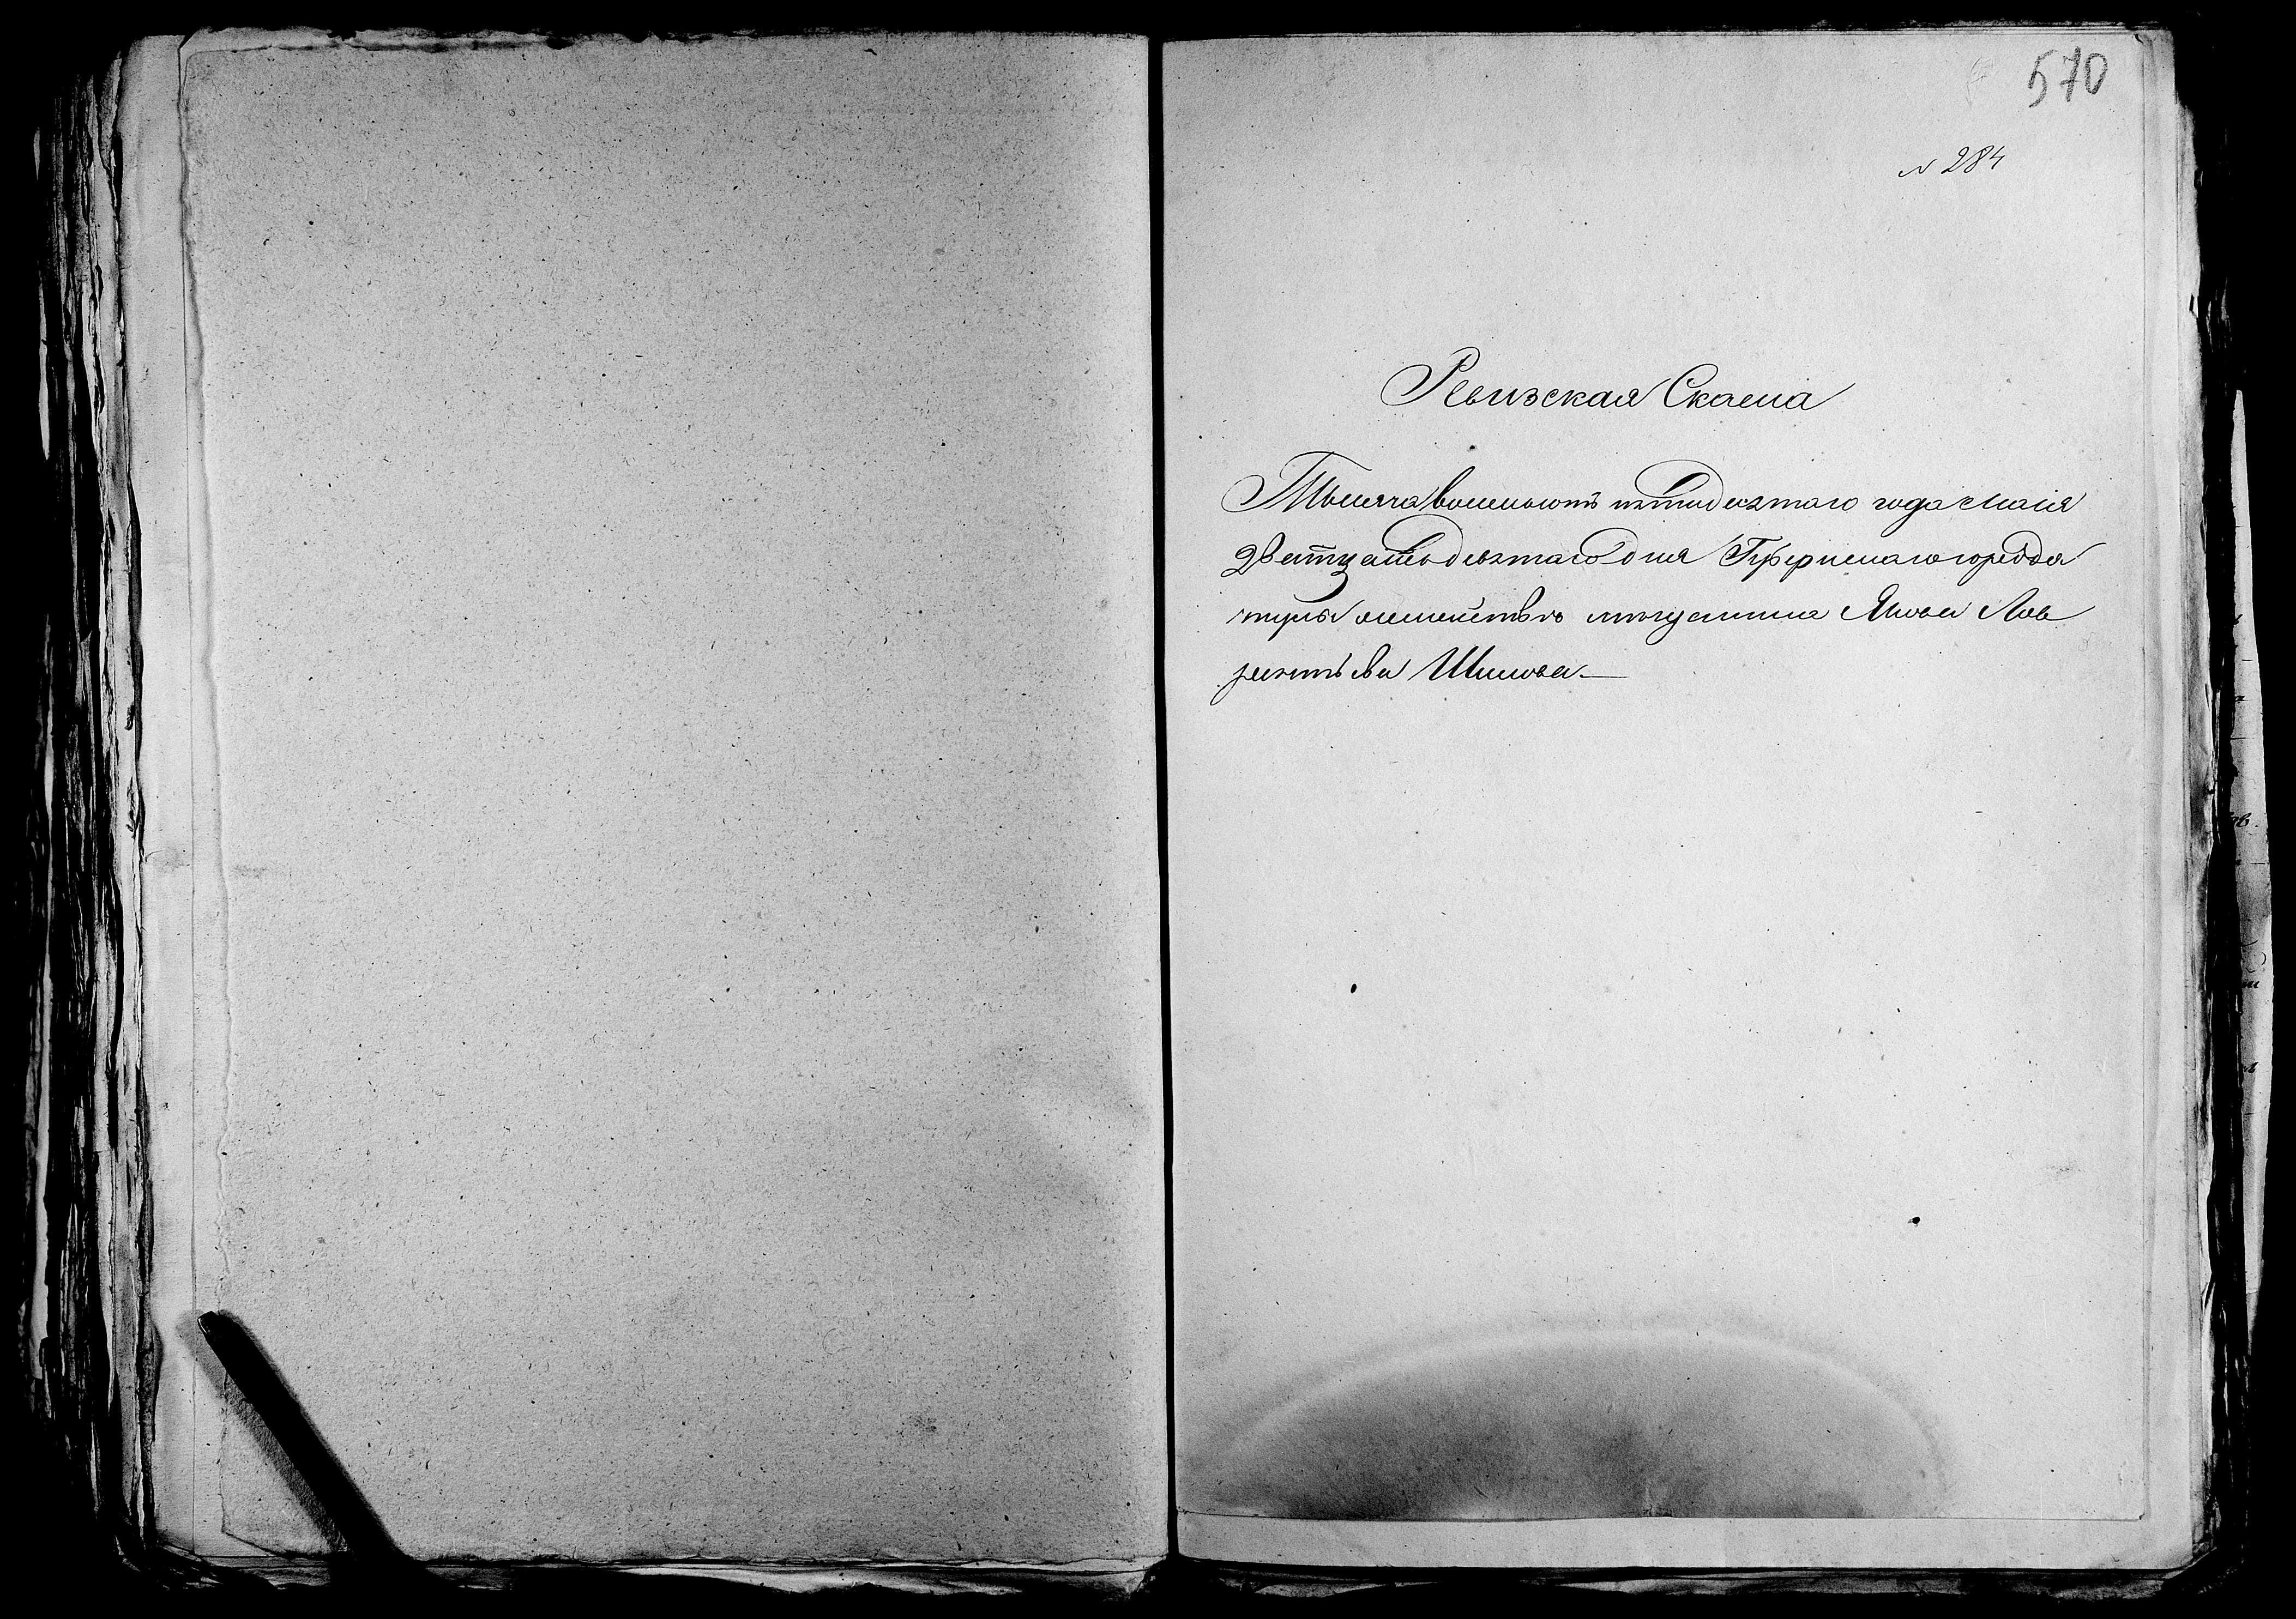 570
№ 284
Ревизская Скаска
Тысяча восемьсотъ пятидесятаго года маия
Дватцать девятаго дня Губернскаго города
тулы о семействѣ мещанина Якова Лав
рентьева Шилова